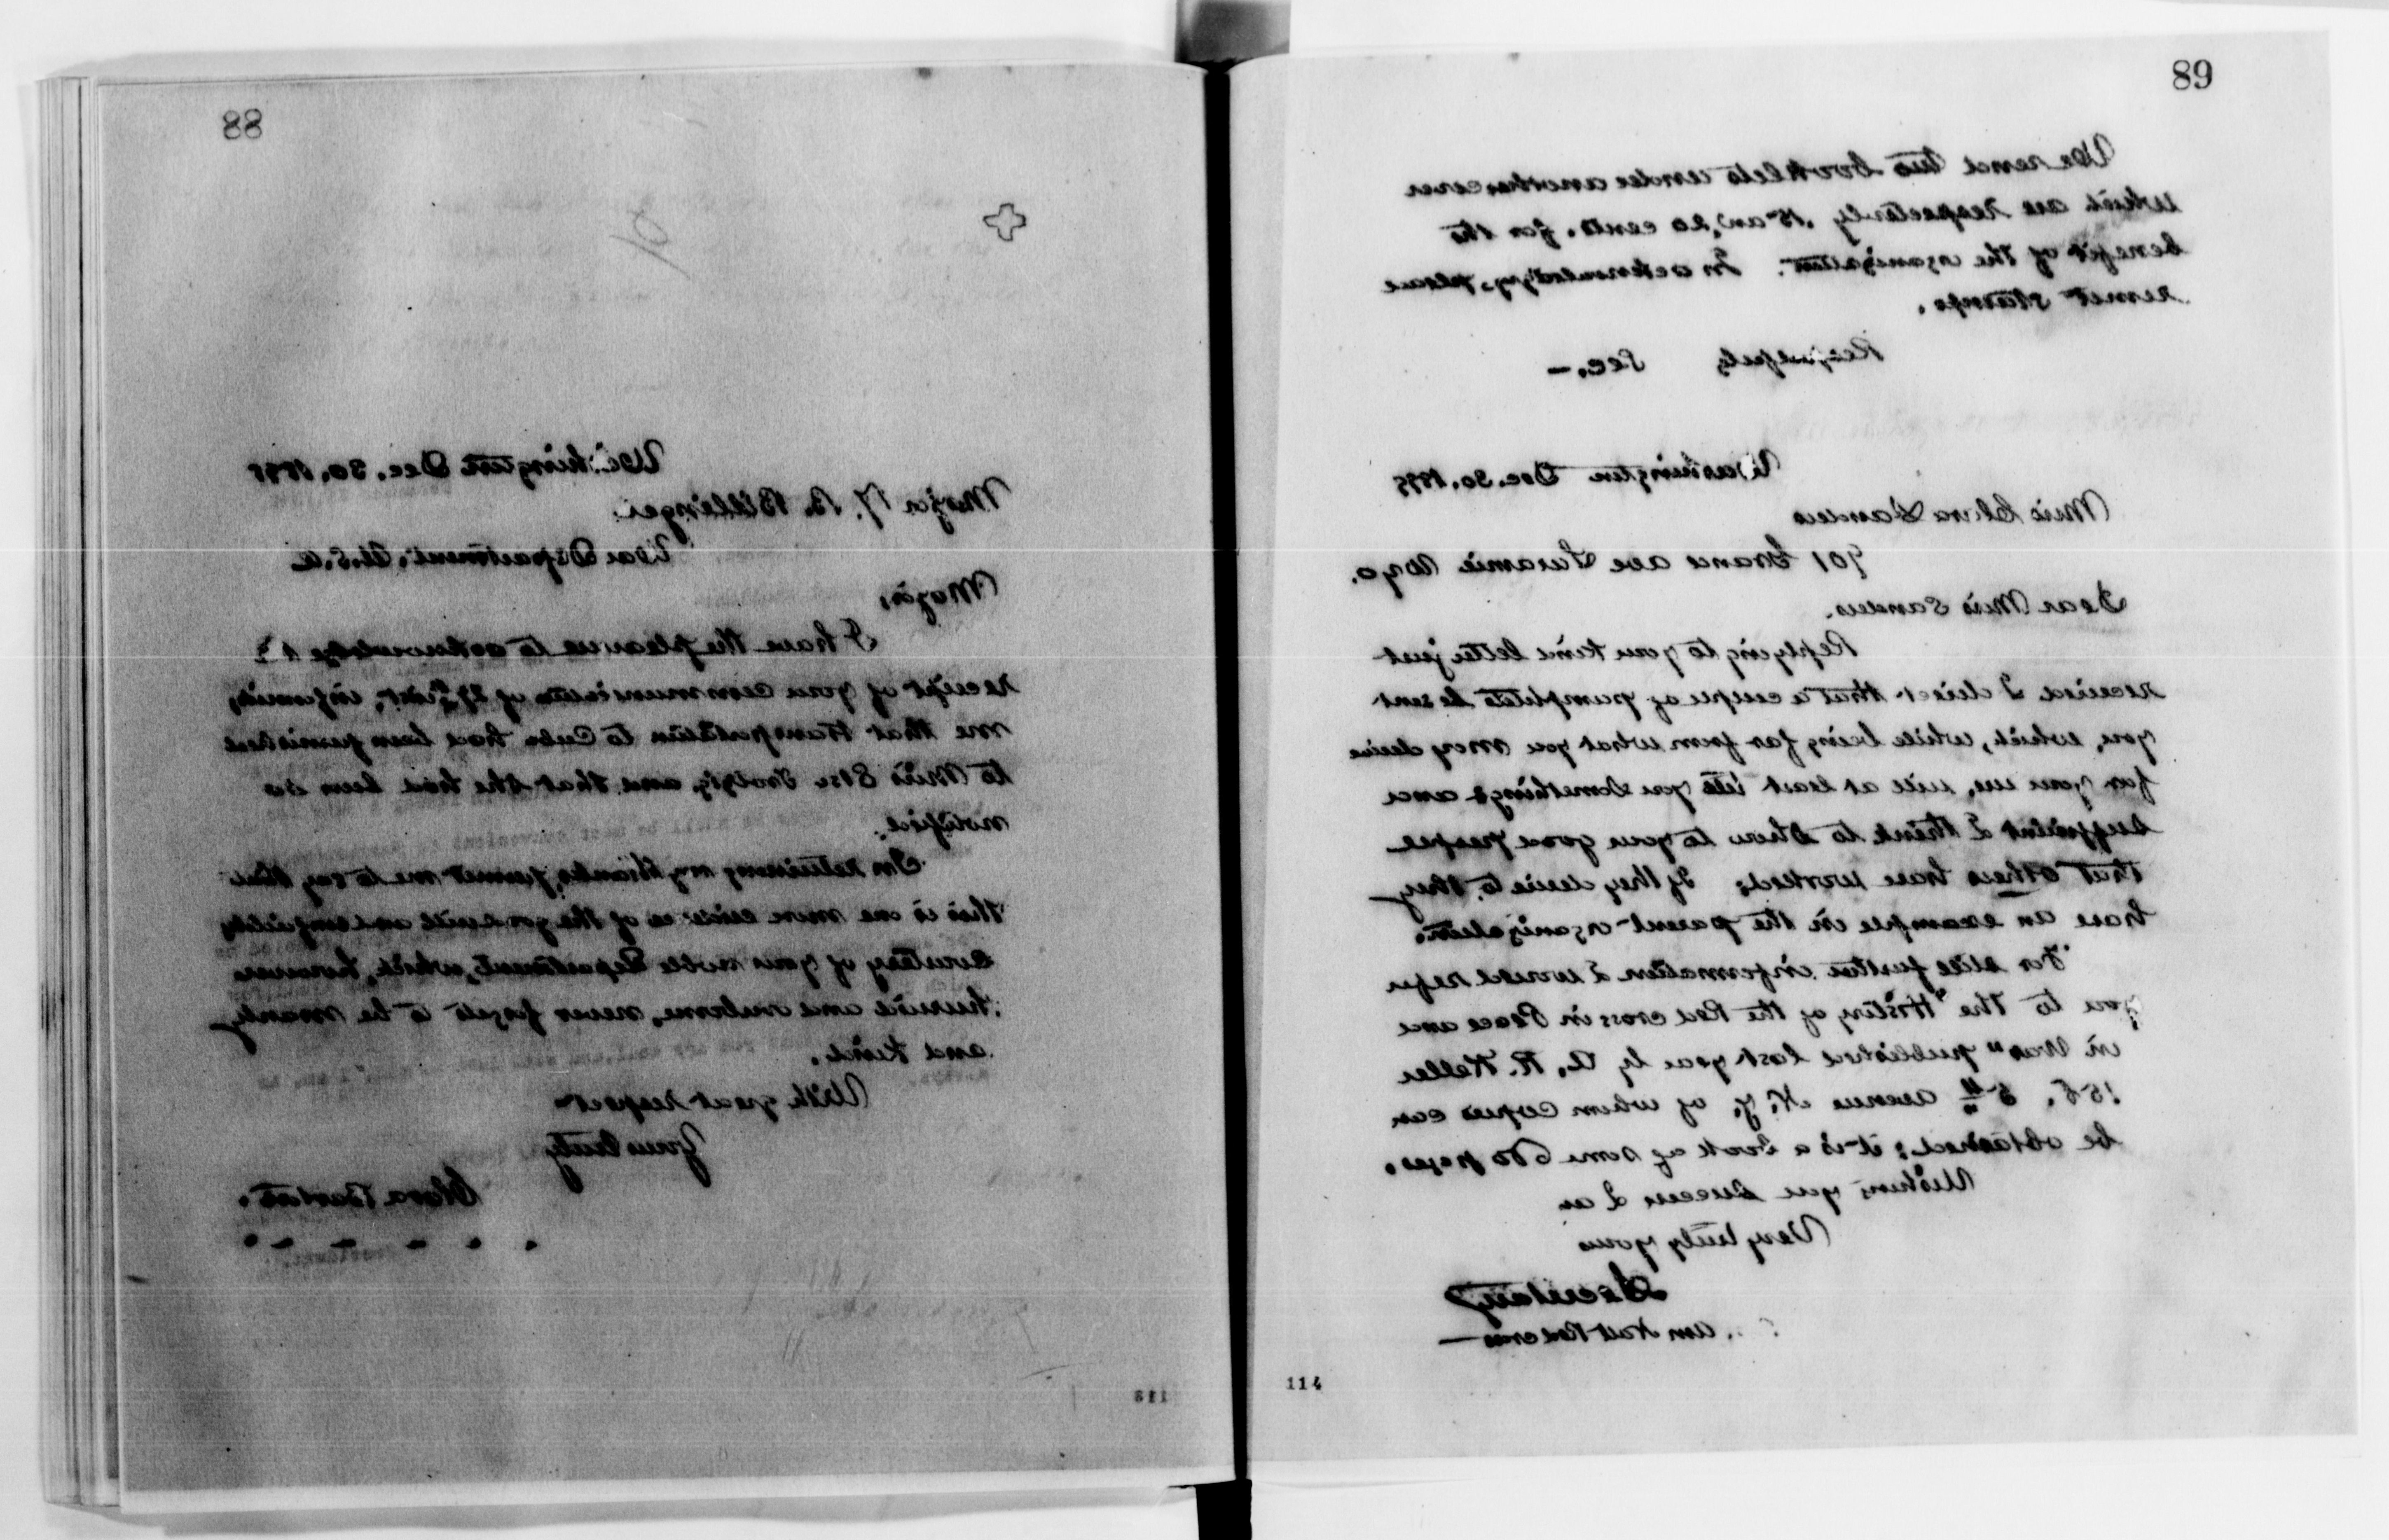 88
Washington Dec. 30, 1899
Major J. B. Billinger
War Department, U.S.A.
Major,
I have the pleasure to acknowledge the
receipt of your communication of 29th inst., informing
me that transportation to Cuba had been furnished
to Miss Else and that she had been so
notified.
In returning my thanks, permit me to say that
this is one more evidence of the and
of your noble Department, which, however
and, never forgets to be manly
and kind.
With great respect
Yours truly
Clara Barton.
113
89
We send two booklets under another cover
which are respectively 15 and 20 cents, for the
benefit of the organization. In acknowledging, please
remit stamps.
Respectfully Sec.—
Washington Dec. 30, 1899
Miss Elvira Sanders
701 Grand ave Laramie Wyo.
Dear Miss Sanders.
Replying to your kind letter just
received I direct that a couple of pamphlets be sent
you, which, while being far from what you may desire
for your use, will at least tell you something and
sufficient I think to show to your good people
that others have worked; if they desire to, they
have an example in the parent organization.
For still further information I would refer
you to the "History of the Red Cross in Peace and
in War" published last year by A. R. Keller
158, 5th avenue N.Y. of whom copies can
be obtained; it is a book of some 600 pages.
Wishing you success I am
Very truly yours
Secretary
Am Nat Red Cross—
114